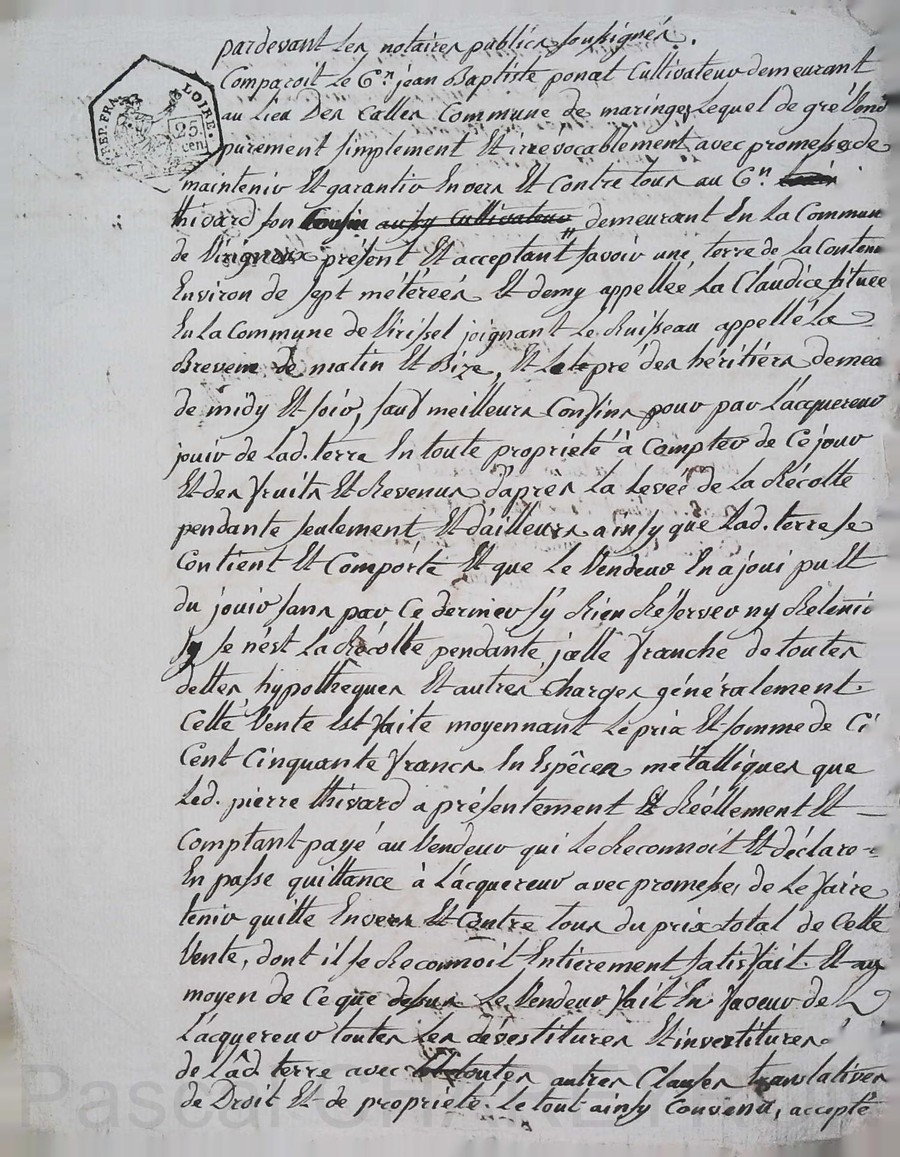 pardevant les notaires publics soussignés.
REP. FRA.
LOIRE.
25
cen
Comparoit le C.en jean Baptiste ponat Cultivateur demeurant
au lieu Des Calles Commune de maringes, Lequel de gré Vend
purement simplement Et irrevocablement avec promesse de
maintenir Et garantir Envers Et Contre tous au C.en
thivard son Cousin aussy Cultivateur demeurant En la Commun
de Virigneux présent Et acceptant savoir une terre de la Conten
Environ de sept métérées Et demy appellée La Claudice située
En la Commune de Virissel joignant Le Ruisseau appellé La
Brevene de matin Et Bize, Et le pré des héritiers demea
de midy Et soir, sauf meilleurs Confins pour par L'acquereur
jouir de Lad. terre En toute proprieté à Compter de Ce jour
Et des fruits Et Revenus d'après La Levée de la Récolte
pendante seulement Et d'ailleurs ainsy que Lad. terre se
Contient Et Comporte Et que Le Vendeur En a joui pu Et
du jouir sans par Ce dernier s'y Rien Réserver ny Retenir
sy Se n'est La Récolte pendante, jcelle franche de toutes
dettes hypothèques Et autres Charges généralement.
Cette Vente Est faite moyennant Le prix Et somme de Ci
Cent Cinquante francs En Espêces métalliques que
Led. pierre thivard a présentement Et Réellement Et
Comptant payé au Vendeur qui Le Reconnoit Et déclare
En passe quittance à L'acquereur avec promesse de Le faire
tenir quitte Envers Et Contre tous du prix total de Cette
Vente, dont il se Reconnoit Entièrement satisfait. Et au
moyen de Ce que dessus Le Vendeur fait En faveur de
L'acquereur toutes Les dévestitures Et investitures
de Lad. terre avec toutes autres Clauses translatives
de Droit Et de proprieté. Le tout ainsy Convenu, accepté